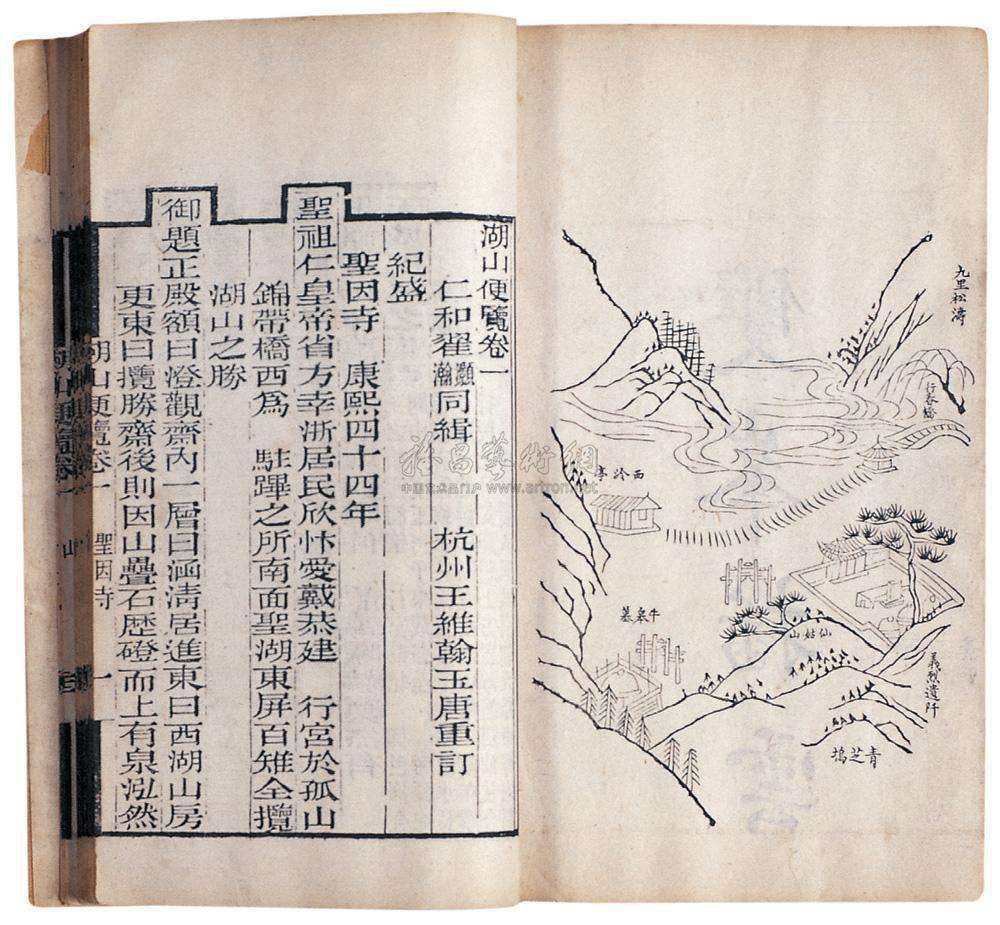 九里松濤
行春橋
西泠亭
牛皋墓
仙姑山
義烈遺阡
青芝塢
湖山便覽卷一
仁和翟灝瀚同緝 杭州王維翰玉唐重訂
紀盛
聖因寺 康熙四十四年
聖祖仁皇帝省方幸浙居民欣忭愛戴恭建 行宮於孤山
錦帶橋西爲 駐蹕之所南面聖湖東屏百雉全攬
湖山之勝
御題正殿額曰澄觀齋內一層曰涵清居進東曰西湖山房
更東曰攬勝齋後則因山疊石歷磴而上有泉泓然
湖山便覽卷一 聖因寺 一
祥昌藝術網
www.artron.net